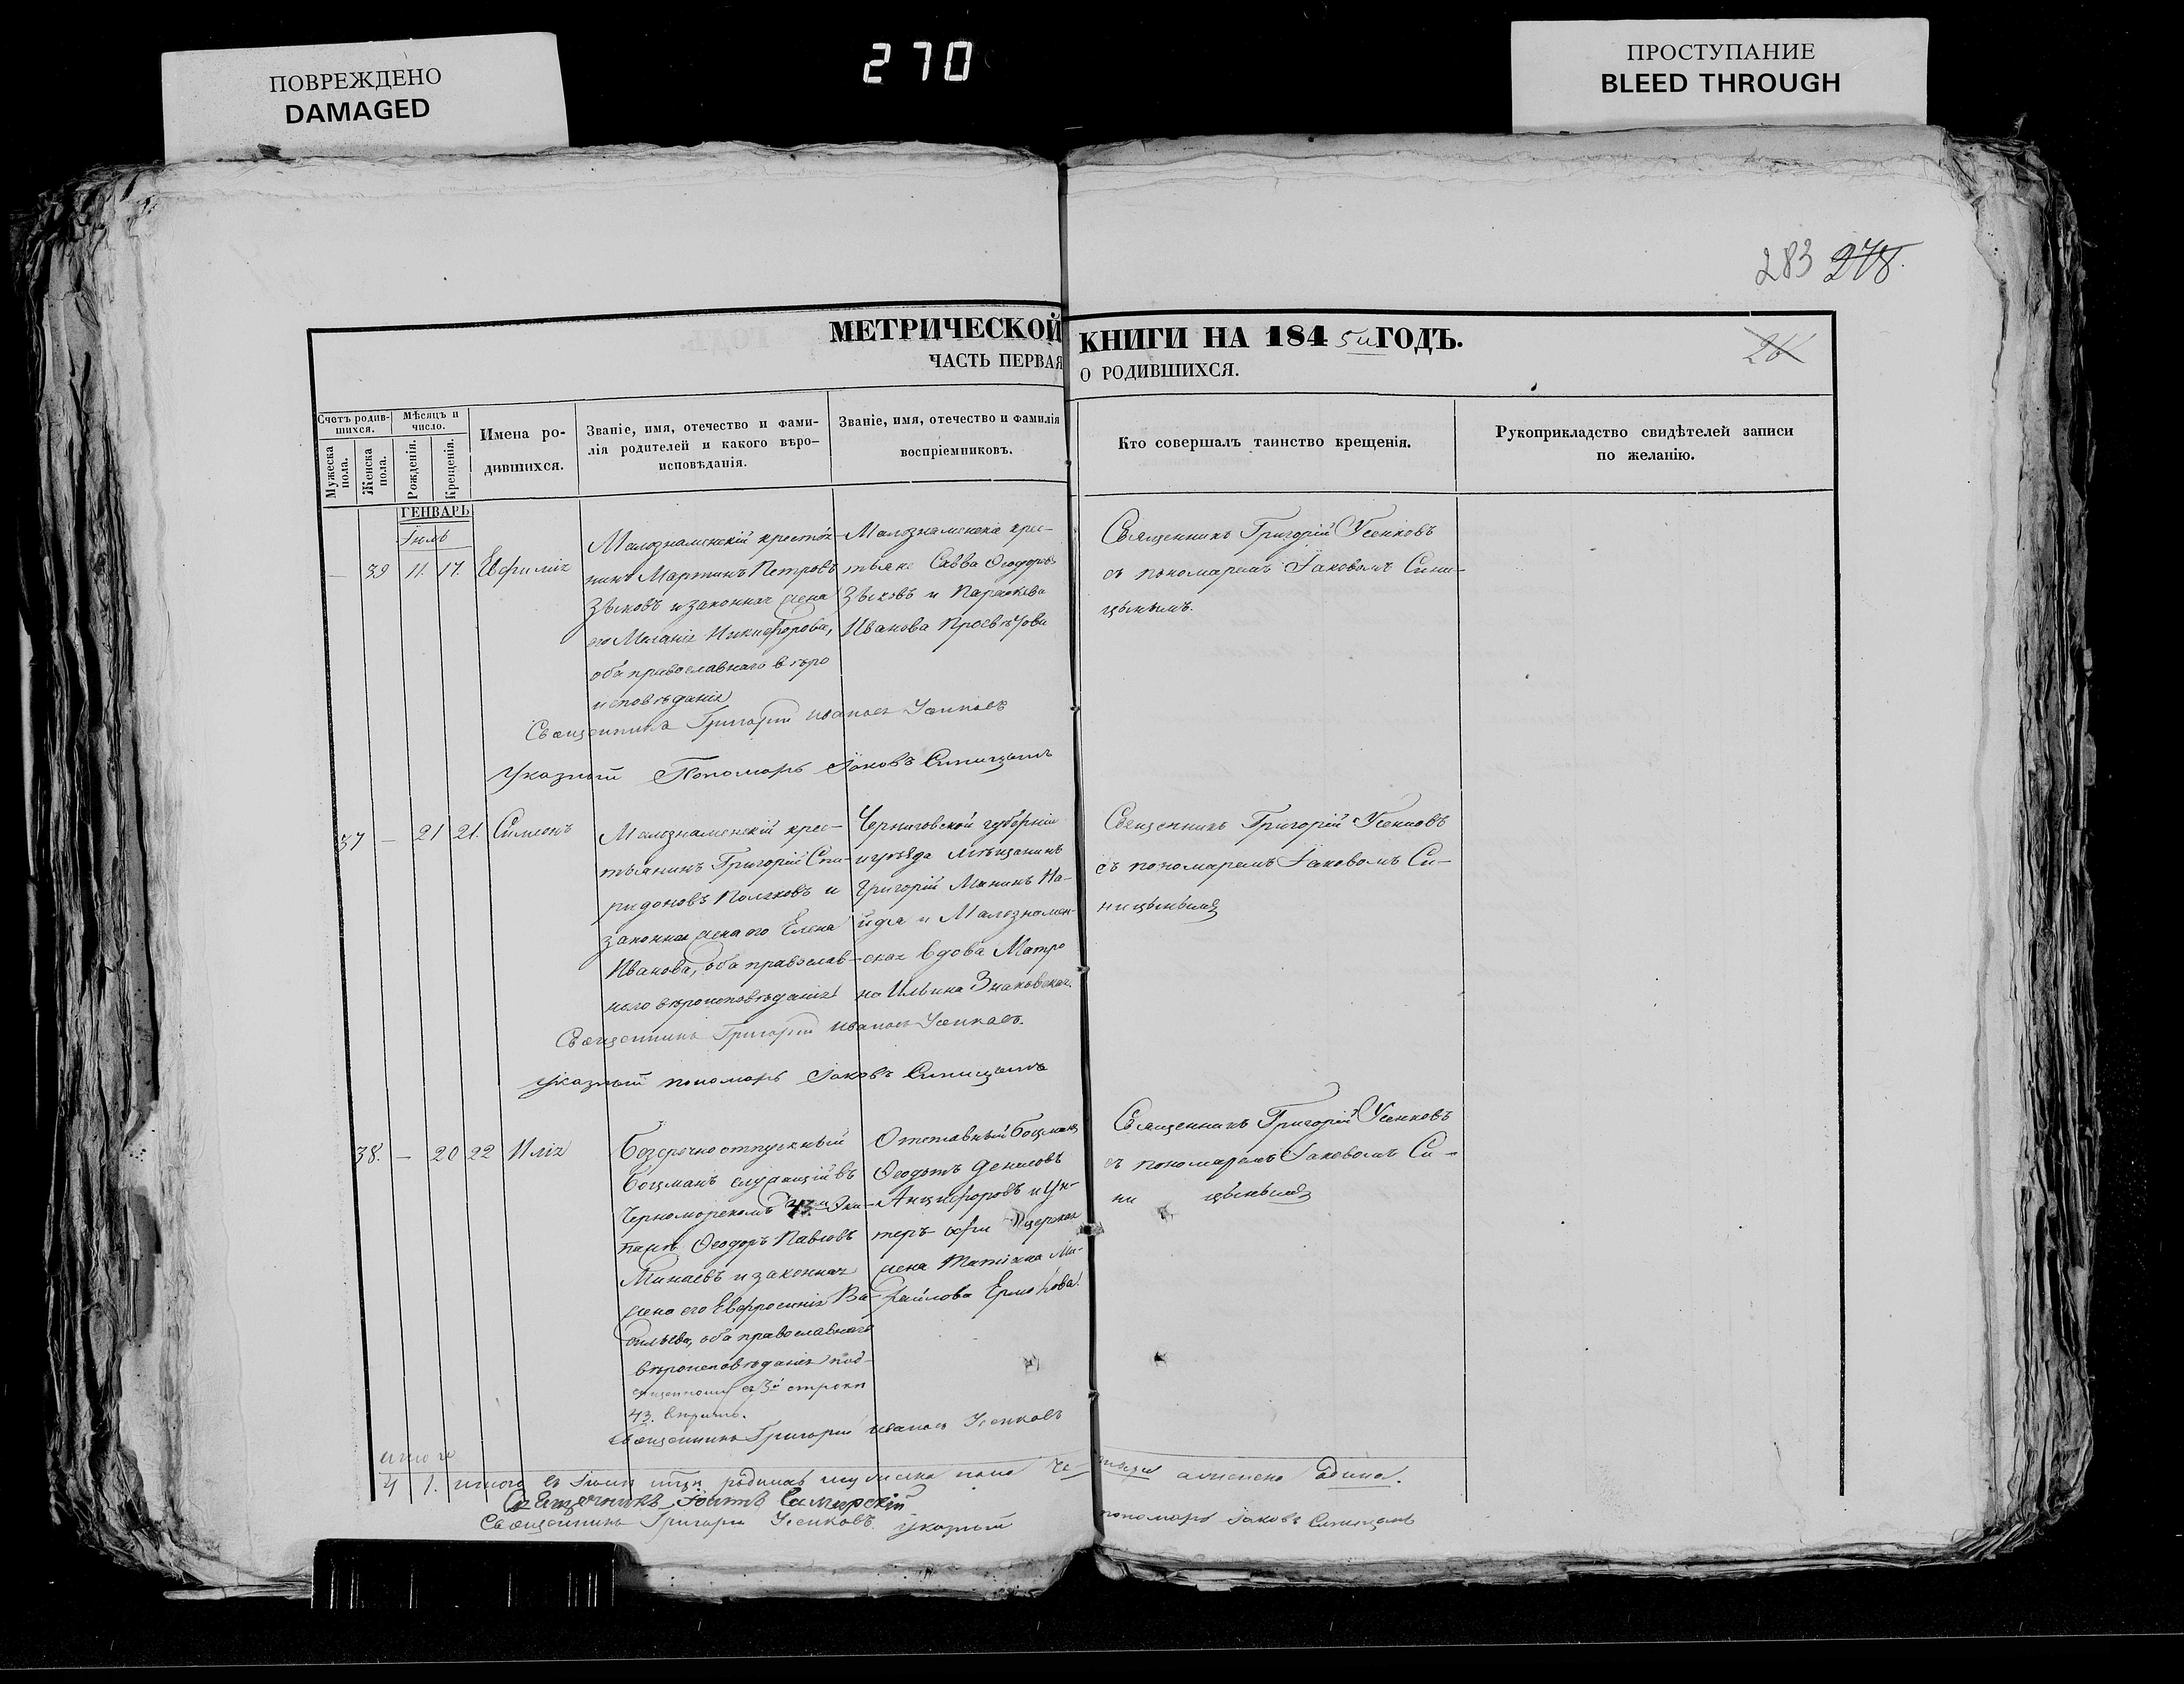 ПОВРЕЖДЕНО
DAMAGED
270
ПРОСТУПАНИЕ
BLEED THROUGH
283 278.
26
МЕТРИЧЕСКОЙ КНИГИ НА 1845й ГОДЪ.
ЧАСТЬ ПЕРВАЯ О РОДИВШИХСЯ.
Счетъ родившихся.
Мужеска пола.
Женска пола.
Мѣсяцъ и число.
Рожденія.
Крещенія.
Имена родившихся.
Званіе, имя, отечество и фамилія родителей и какого вѣроисповѣданія.
Званіе, имя, отечество и фамилія воспріемниковъ.
Кто совершалъ таинство крещенія.
Рукоприкладство свидѣтелей записи по желанію.
ГЕНВАРЬ
Іюль
— 39 11. 17. Евфимія
Малознаменскій крестья-
нинъ Мартинъ Петровъ
Зыковъ и законная жена
его Меланія Никифорова,
оба православнаго вѣро
исповѣданія
Малознаменскіе крес-
тьяне Савва Ѳеодоровъ
Зыковъ и Параскева
Иванова
Священникъ Григорій Усенковъ
съ пономаремъ Іаковомъ Сини-
цынымъ.
Священникъ Григорій Ивановъ Усенковъ
Указный Пономарь Іаковъ Синицынъ
37 — 21 21. Симеонъ
Малознаменскій крес-
тьянинъ Григорій Спи-
ридоновъ Поляковъ и
законная жена его Елена
Иванова, оба православ-
наго вѣроисповѣданія
Черниговской губерніи
и уѣзда мѣщанинъ
Григорій Мининъ На-
йда и Малознамен-
ская вдова Матро
на Ильина Знаковская.
Священникъ Григорій Усенковъ
съ пономаремъ Іаковомъ Си-
ницынымъ
Священникъ Григорій Ивановъ Усенковъ.
Указный пономарь Іаковъ Синицынъ
38. — 20 22 Илія
Безсрочноотпускный
боцманъ служащій въ
Черноморскомъ 43м Эки-
пажѣ Ѳеодоръ Павловъ
Минаевъ и законная
жена его Евфросинія Ва-
сильева, оба православнаго
вѣроисповѣданія под-
чищенному въ 3й строки
43. вѣрить.
Отставный боцманъ
Ѳеодотъ Денисовъ
Анциферовъ и Ун-
теръ-офи церская
жена Татіана Ми-
хайлова
Священникъ Григорій Усенковъ
съ пономаремъ Іаковомъ Си-
ни цынымъ
Священникъ Григорій Ивановъ Усенковъ
итого
4 1. итого въ Іюлѣ мцѣ. родилось мужеска пола четыри а женска одина.
Священникъ Іоаннъ
Священникъ Григорій Усенковъ. Указный пономарь Іаковъ Синицынъ